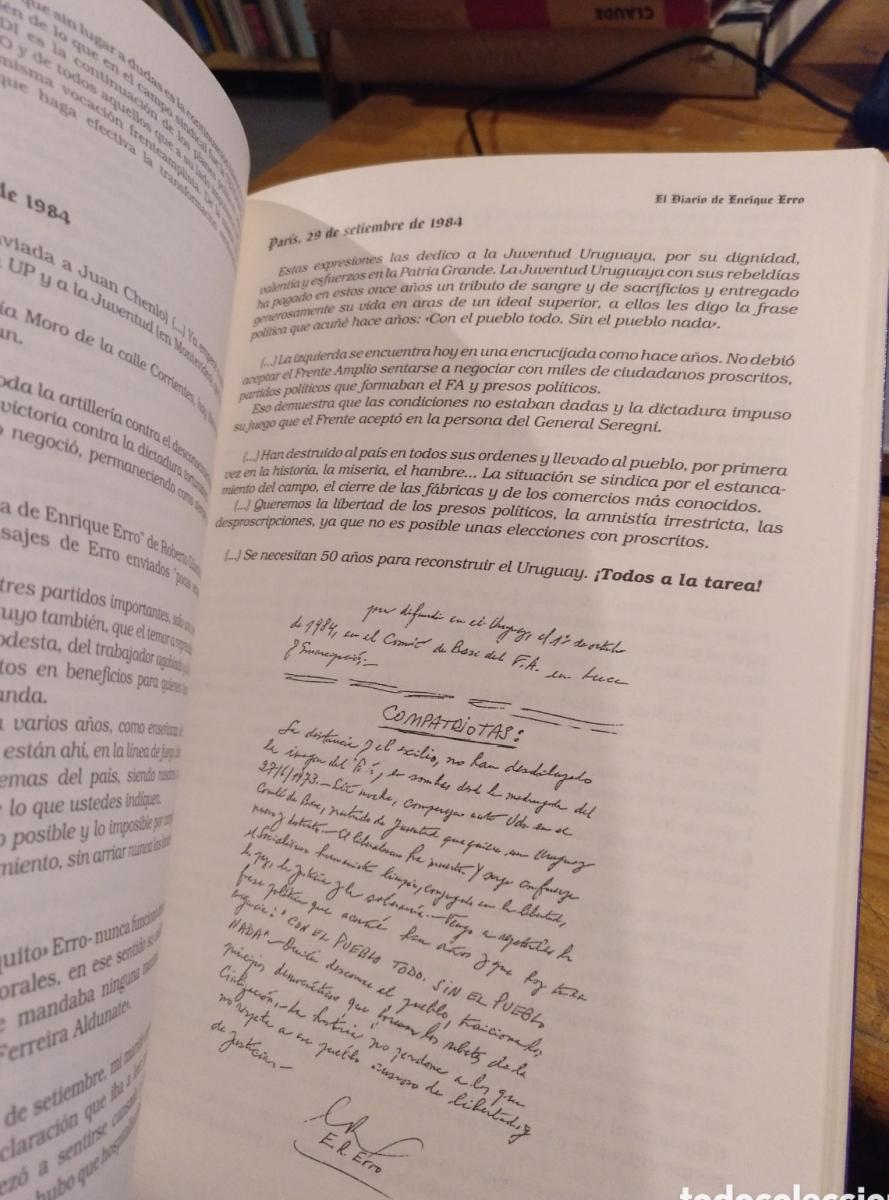 CLAUDE
que sin lugar a dudas es la continuación
de lo que en el campo sindical fue la
DI es la continuación de los planes
O y de todos aquellos que a su lado
misma vocación frenteamplista. De
que haga efectiva la transformación
de 1984
nviada a Juan Chenlo) (...) Ya
UP y a la Juventud (en Montevideo
ía Moro de la calle Corrientes, hoy
an.
oda la artillería contra el
victoria contra la dictadura
o negoció, permaneciendo como siempre
a de Enrique Erro" de Roberto
sajes de Erro enviados "pocas
tres partidos importantes, solo
tuyo también, que el temor a
odesta, del trabajador agobiado
tos en beneficios para quienes
anda.
varios años, como enseñanza
están ahí, en la línea de fuego, de
emas del país, siendo
lo que ustedes indiquen.
o posible y lo imposible por
miento, sin arriar nunca las
quito» Erro- nunca
orales, en ese sentido su
e mandaba ninguna
Ferreira Aldunate».
de setiembre, mi
claración que iba a
ezó a sentirse cansado
hubo que
El Diario de Enrique Erro
París, 29 de setiembre de 1984
Estas expresiones las dedico a la Juventud Uruguaya, por su dignidad,
valentía y esfuerzos en la Patria Grande. La Juventud Uruguaya con sus rebeldías
ha pagado en estos once años un tributo de sangre y de sacrificios y entregado
generosamente su vida en aras de un ideal superior, a ellos les digo la frase
política que acuñé hace años: «Con el pueblo todo. Sin el pueblo nada».
(...) La izquierda se encuentra hoy en una encrucijada como hace años. No debió
aceptar el Frente Amplio sentarse a negociar con miles de ciudadanos proscritos,
partidos políticos que formaban el FA y presos políticos.
Eso demuestra que las condiciones no estaban dadas y la dictadura impuso
su juego que el Frente aceptó en la persona del General Seregni.
(...) Han destruido al país en todos sus ordenes y llevado al pueblo, por primera
vez en la historia, la miseria, el hambre... La situación se sindica por el estanca-
miento del campo, el cierre de las fábricas y de los comercios más conocidos.
(...) Queremos la libertad de los presos políticos, la amnistía irrestricta, las
desproscripciones, ya que no es posible unas elecciones con proscritos.
(...) Se necesitan 50 años para reconstruir el Uruguay. ¡Todos a la tarea!
por difundir en el Uruguay, el 1º de octubre
de 1984, en el Comité de Base del F.A. en Luca
y Emancipación.-
COMPATRIOTAS:
La distancia y el exilio, no han desdibujado
la imagen del País, en sombras desde la madrugada del
27/6/1973.- Esta noche, compenso ante Uds en el
Comité de Base, rodeado de Juventud que quiere un Uruguay
nuevo y distinto.- El liberalismo ha muerto y surge con fuerza
el Socialismo humanista limpio, conjugado en la libertad,
la paz, la justicia y la soberanía.- Vengo a repetirles la
frase política que acuñé hace años y que hoy tiene
vigencia: "CON EL PUEBLO TODO. SIN EL PUEBLO
NADA".- Quién desconoce al pueblo, traiciona los
principios democráticos que forman los sustratos de la
Civilización.- La historia no perdona a los que
no respeta a un pueblo ansioso de libertad y
de justicia.-
E.R. Erro
todocoleccion